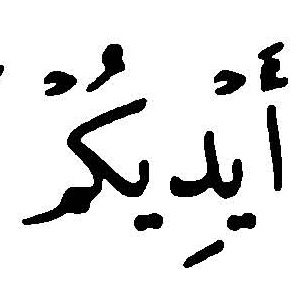 أَيْدِيكُمْ